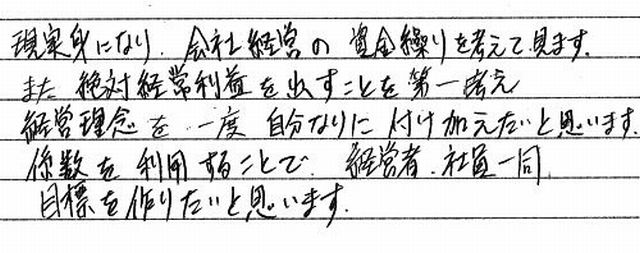 現実身になり、会社経営の資金繰りを考えて見ます。
また絶対経常利益を出すことを第一考え
経営理念を一度自分なりに付け加えたいと思います。
係数を利用することで、経営者、社員一同、
目標を作りたいと思います。